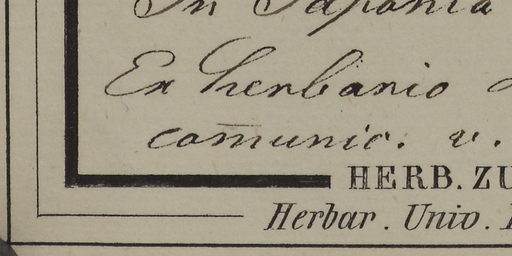 In Japonia
Ex herbario
com̅unic. v.
HERB. ZU
Herbar. Univ.